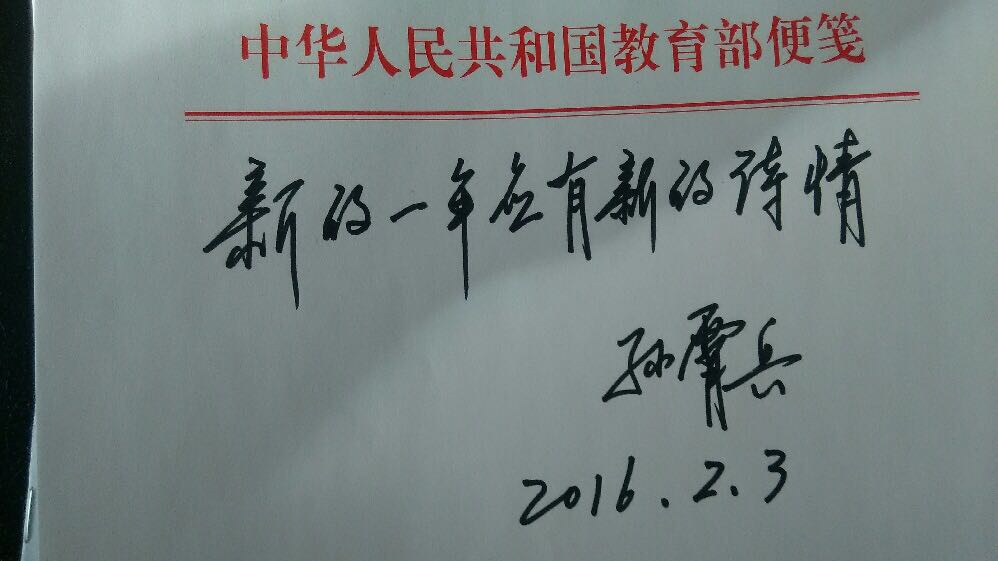 中华人民共和国教育部便笺
新的一年应有新的诗情
孙霄兵
2016.2.3